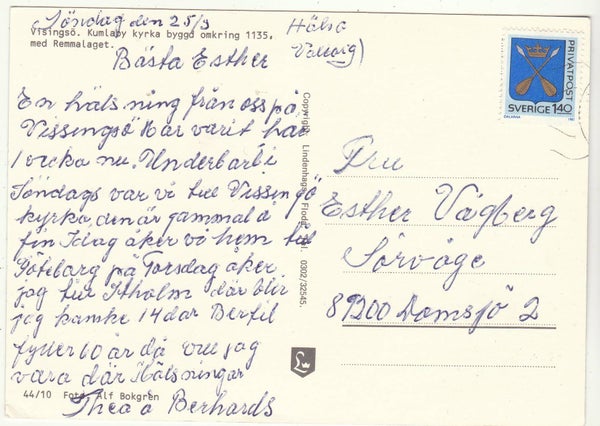 Söndag den 25/9
Visingsö. Kumlaby kyrka byggd omkring 1135,
med Remmalaget.
Hälsa
Bästa Esther
En hälsning från oss på
Vissingsö Har varit här
1 vecka nu. Underbart i
Söndags var vi till Vissingsö
kyrka den är gammal å
fin Idag åker vi hem till
Göteborg på Torsdag åker
jag till Stholm där blir
jag kanske 14 dar Bertil
fyller 60 år då vill jag
vara där Hälsningar
Thea o Berhards
44/10 Foto Alf Bokgren
Copyright: Lindenhags, Floda. Tel. 0302/32545.
PRIVATPOST
SVERIGE 140
DALARNA
Fru
Esther Vågberg
Sörvåge
89200 Domsjö 2